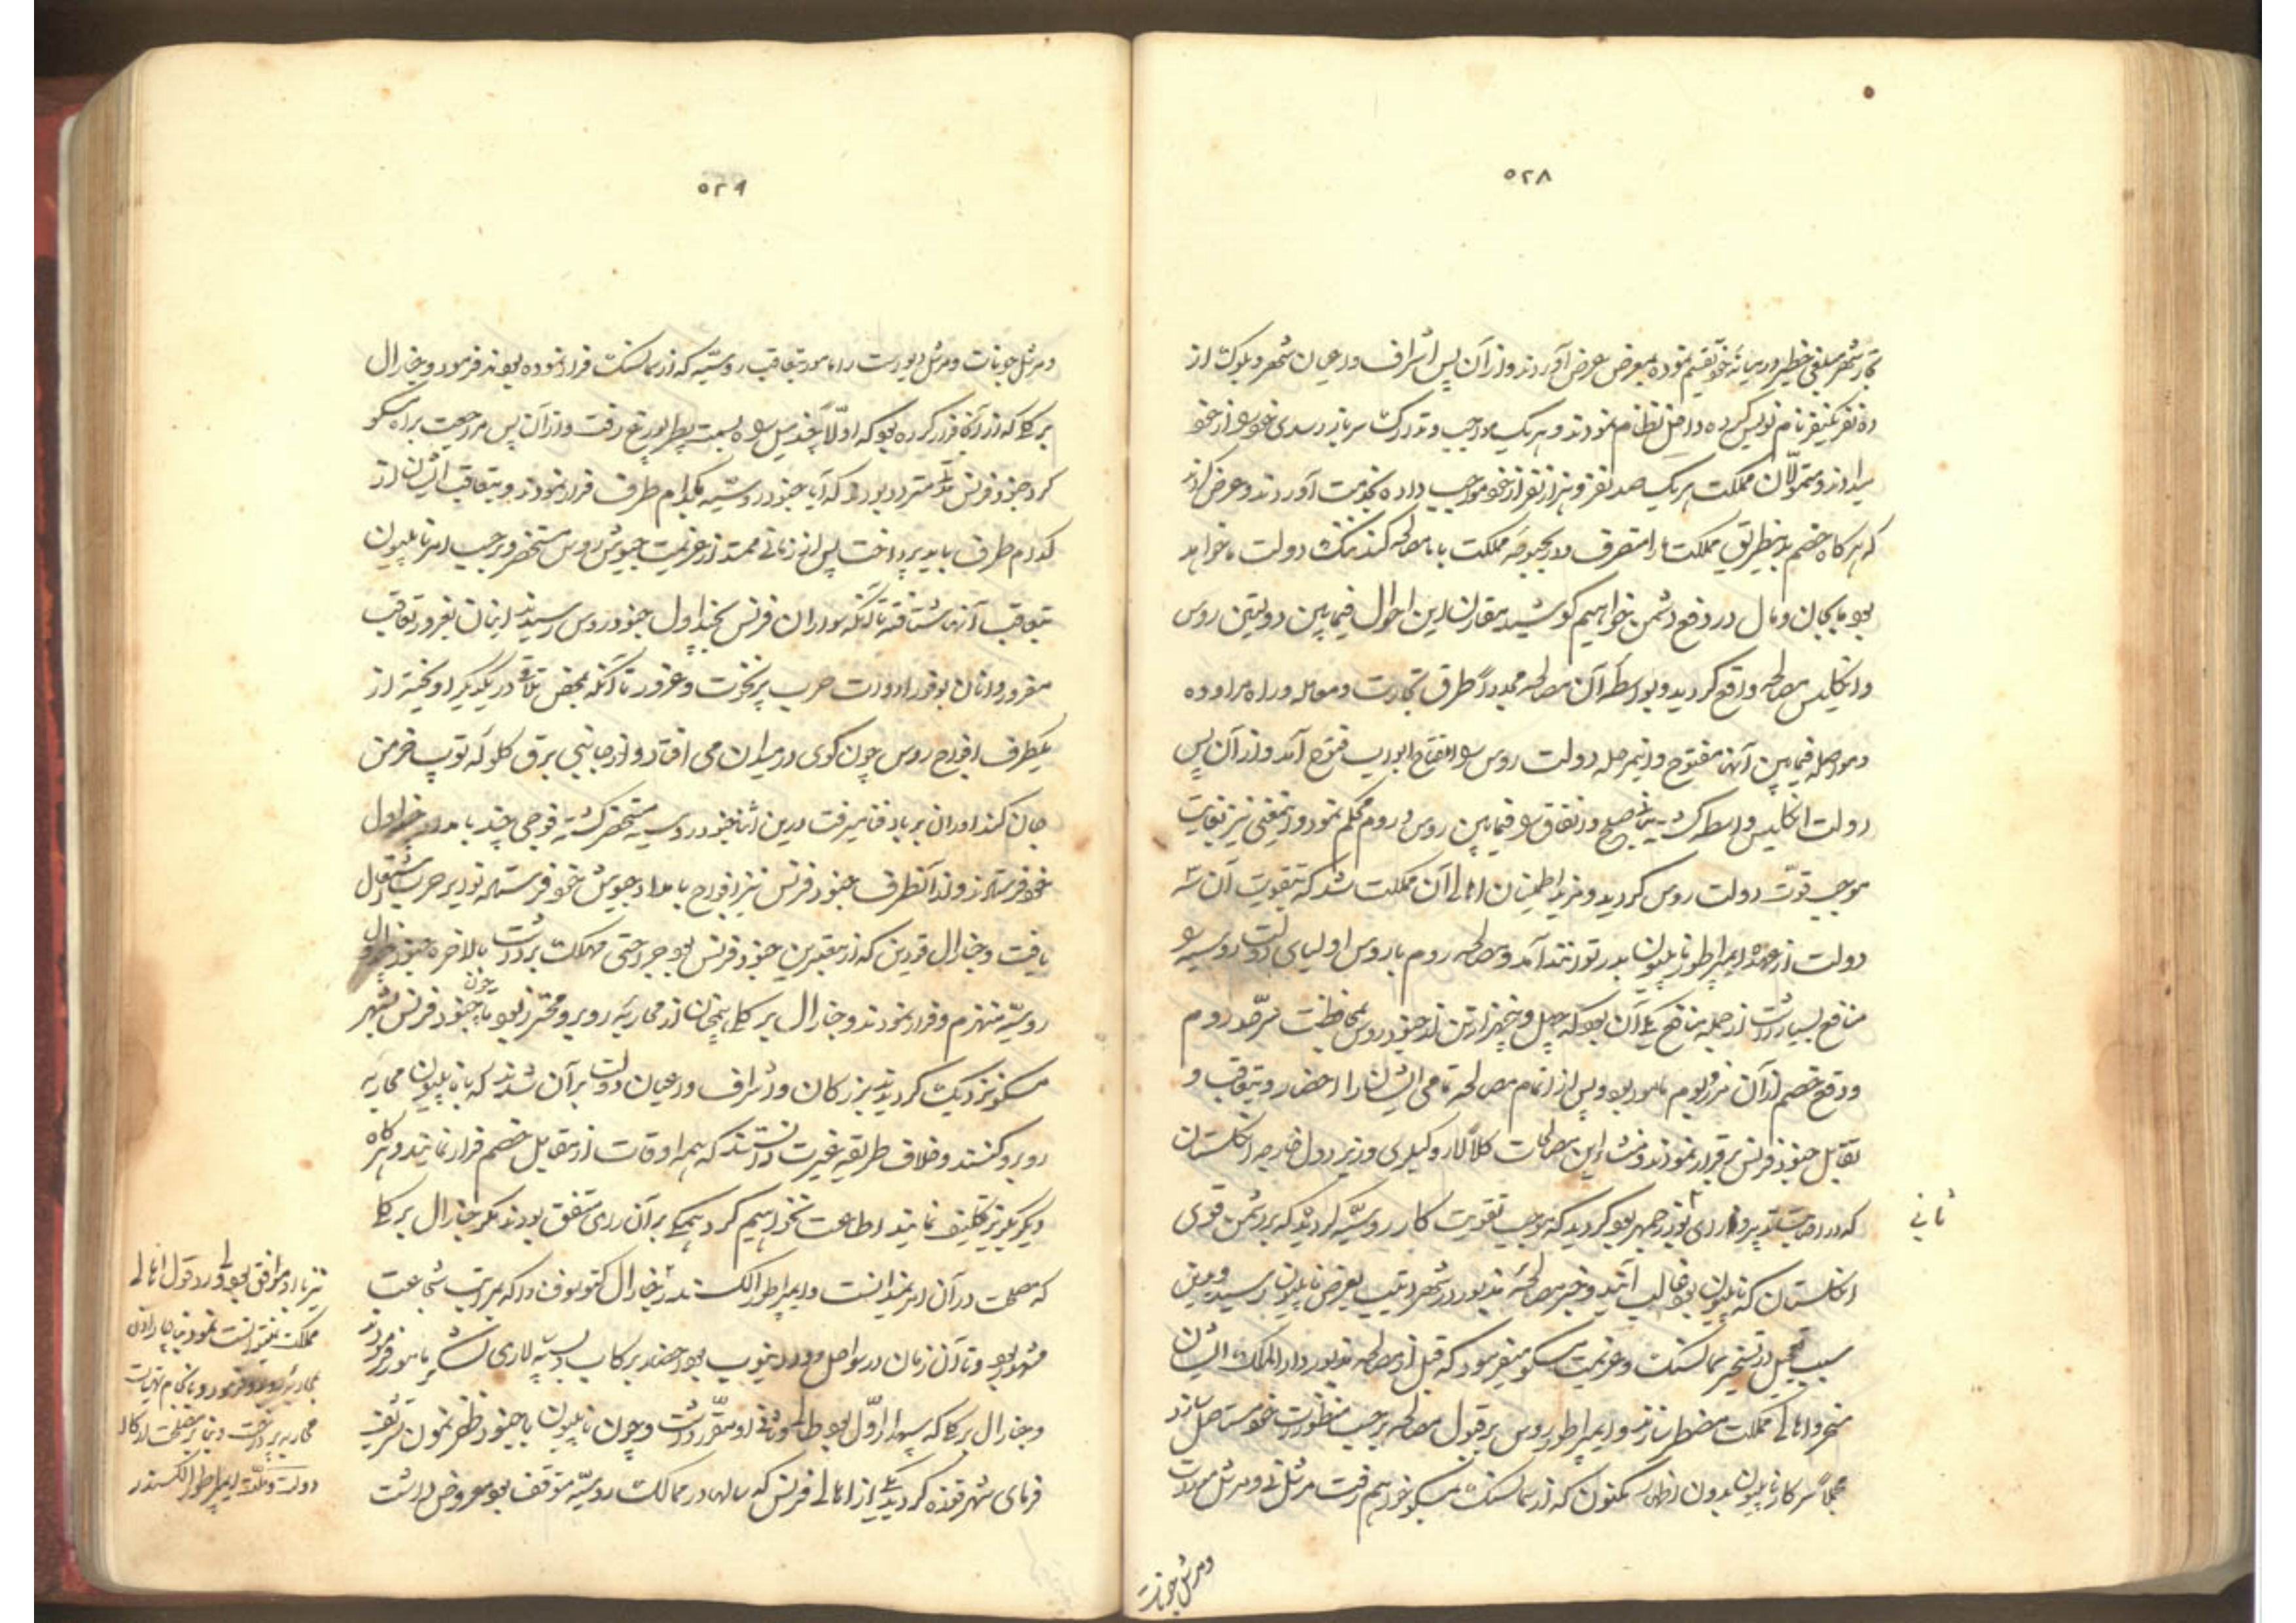 ۵۲۸
تجار شهر مبلغی خطیر در میانه خود تقسیم نموده بمعرض عرض آوردند و از آن پس اشراف و اعیان شهر و بلوکت از
ده نفر یکنفر نام نویس کرده داخل نظام نمودند و هر یک مواجب و تدارک سرباز رسدی خود را از خود
میدادند و متمولان مملکت هر یک صد نفر و هزار نفر از خود مواجب داده بخدمت آوردند و عرض کردند
که هر کاه خصم بدینطریق مملکت ما را متصرف و در بحبوحه مملکت با ما مصالحه کند ننک دولت ما خواهد
بود ما بجان و مال در دفع دشمن خواهیم کوشید مقارن این احوال فیمابین دولتین روس
و انکلیس مصالحه واقع کردید و بواسطه آن مصالحه مجددا طرق تجارت و معامله و راه مراوده
و مواصله فیمابین آنها مفتوح و اینمرحله دولت روس را مفتاح ابواب فتوح آمد و از آن پس
دولت انکلیس واسطه کشته بنای صلح و اتفاق را فیمابین روس و روم محکم نمود و اینمعنی نیز بغایت
موجب قوت دولت روس کردید و مزید اطمینان اهالی آن مملکت شد که بتقویت آن سه
دولت از عهده ایمپراطور ناپلیون بدر توانند آمد و مصالحه روم با روس اولیای دولت روسیه را
منافع بسیار داشت از جمله منافع یکی آن بود که چهل و پنجهزار تن از جنود روس بمحافظت سرحد روم
و دفع خصم از آن مرز و بوم مامور بود و پس از اتمام مصالحه تمامی ایشان را احضار و بتعاقب و
تقابل جنود فرنس برقرار نمودند و منشاء این مصالحات کلا لارد وکیلری وزیر دول خارجه انکلستان
که در اصابت تدبیر و رای بوذرجمهر بود کردید که موجب تقویت کار روسیه کردید که بر دشمن قوی
ثانی
انکلستان که ناپلیون بود غالب آیند و خبر مصالحه مذبور در شهر دیتبسک بعرض ناپلیون رسید و همین
سبب تعجیل در تسخیر سمالنسک و عزیمت مسکو میفرمود که قبل از مصالحه مذبور دارالملک ایشان
مسخر و اهالی مملکت مضطر سازند و ایمپراطور روس بر قبول مصالحه بر حسب منظورات خود مستاصل سازد
مجملا سرکار ناپلیون بدون اظهار مکنون که از سمالنسک بمسکو خواهم رفت مرشل نی و مرشل مورات
ومرشل جونات
۵۲۹
ومرشل جونات و مرشل دیورست را مامور بتعاقب روسیه که از سمالنسک فرار نموده بودند فرمود و جنرال
برکلی که از آنجا فرار کرده بود که اولا چند میل راه بسمت پطربورغ رفت و از آن پس مراجعت براه مسکو
کرد جنود فرنس متردد بودند که آیا جنود روسیه بکدام طرف فرار نمودند و بتعاقب ایشان از
کدام طرف باید پرداخت پس از زمانی ممتد از عزیمت جیوش روس مستحضر و بر حسب امر ناپلیون
بتعاقب آنها شتافته تا آنکه سواران فرنس بچنداول جنود روس رسیدند اینان بغرور تعاقب
مغرور و آنان بوفور ادوات حرب پرنخوت و غرور تا آنکه بمحض تلاقی در یکدیکر آویخته از
یکطرف افواج روس چون کوی در میدان می افتاد و از جانبی برق کلوله توپ خرمن
جان کنداوران بر باد فنا میرفت در این اثنا جنود روسیه مستحضر کشته فوجی چند بامداد چنداول
خود فرستادند و از آنطرف جنود فرنس نیز افواج بامداد جیوش خود فرستاده نوایر حرب اشتعال
یافت و جنرال قودین که از معتبرین جنود فرنس بود جراحتی مهلک برداشت بالاخره جنود جنرال
روسیه منهزم و فرار نمودند و جنرال برکلی همچنان از محاربه روبرو محترز بود تا چون جنود فرنس بشهر
مسکو نزدیک کردیدند بزرکان و اشراف و اعیان دولت بر آن شدند که با ناپلیون محاربه
روبرو کنند و خلاف طریقه غیرت دانستند که همه اوقات از مقابل خصم فرار نمایند و هر کاه
دیکر بکریز تکلیف نمایند اطاعت نخواهیم کرد همکی بر آن رای متفق بودند مکر جنرال برکلی
که مصلحت در آن امر نمیدانست و ایمپراطور الکسندر جنرال کتوسوف را که بمراتب شجاعت
مشهور بود و تا آن زمان در سواحل رود دنیوب بود احضار برکاب و بسپه سالاری لشکر مامور فرمودند
و جنرال برکلی که سپهدار اول بود طالب وثانی او مقرر داشت و چون ناپلیون با جنود ظفر نمون تشریف
فرمای شهر قعذه کردید یکی از اهالی فرنس که سالها در ممالک روسیه متوقف بود معروض داشت
نیز با او موافق بود و لی رد قول اهالی
مملکت نمیتوانست نمود بناچار اذن
محاربه روبرو فرمود و باحکام تهیات
محاربه پرداخت و بنا بر مصلحت ارکان
دولت و ملت ایمپراطور الکسندر